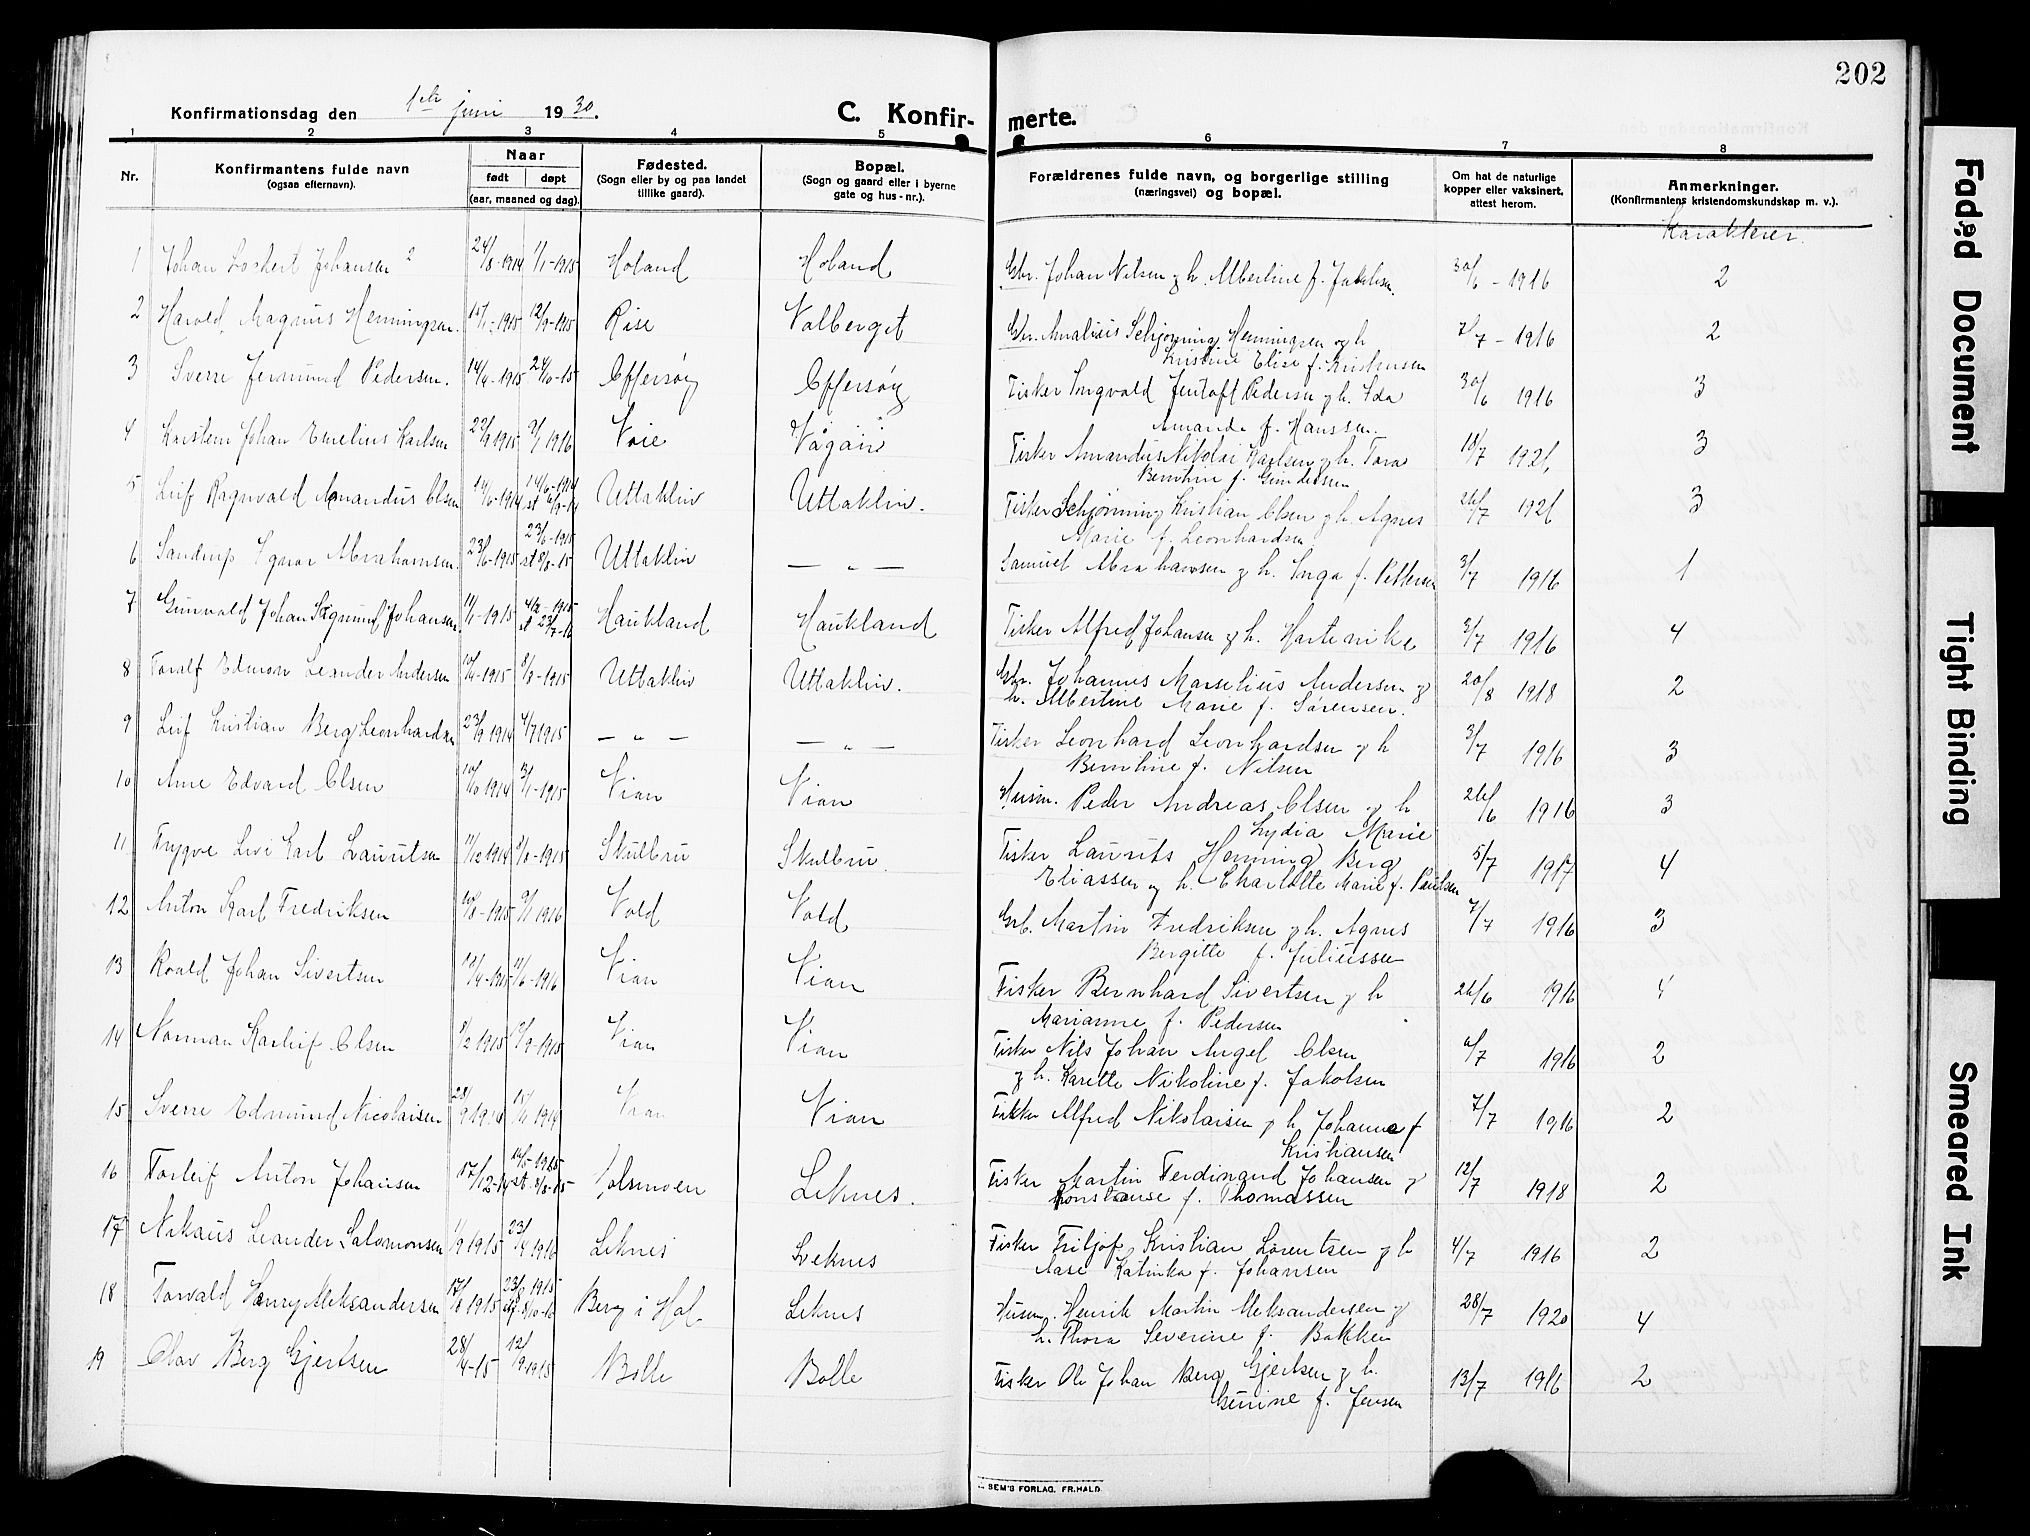 202
Konfirmationsdag den 1ste juni 1930.
C. Konfirmerte.
1 2 3 4 5 6 7 8
Nr.
Konfirmantens fulde navn
(ogsaa efternavn).
Naar
født døpt
(aar, maaned og dag).
Fødested.
(Sogn eller by og paa landet
tillike gaard).
Bopæl.
(Sogn og gaard eller i byerne
gate og hus-nr.).
Forældrenes fulde navn, og borgerlige stilling
(næringsvei) og bopæl.
Om hat de naturlige
kopper eller vaksinert,
attest herom.
Anmerkninger.
(Konfirmantens kristendomskundskap m. v.).
Karakterer.
1 Johan Lockert Johansen 24/8-1914 1/1-1915 Holand Holand Gbr. Johan Nilsen og h. Albertine f. Jakobsen. 30/6 - 1916 2
2 Harold Magnus Henningsen. 15/1-1915 12/9-1915 Rise Valberget Gbr. Analius Schjønning Henningsen og h
Kristine Elise f. Kristensen 7/7 - 1916 2
3 Sverre Jermund Pedersen. 14/4-1915 24/6-15 Offersøy Offersøy Fisker Ingvald Jentoft Pedersen og h. Ida
Amanda f. Hanssen. 30/6 1916 3
4 Karstein Johan Emelius Karlsen 1915 1916 Voie Fisker Amandus Nikolai Karlsen og h. Tora
Bernthine f. Gundersen 18/7 1921 3
5 Leif Ragnvald Amandus Olsen 14/6-1914 14/6-1914 Uttakliv Uttakliv. Fisker Schjønning Kristian Olsen og h. Agnes
Marie f. Leonhardsen 26/7 3
6 Sandrup Ignar Abrahamsen. 23/6-1915 23/6-1915
st 8/8-15 Uttakliv — „ — Samuel Abrahamsen og h. Inga f. Pettersen 3/7 1916 1
7 Gunvald Johan Sigmund Johansen. 11/1-1915 4/2-1915
st 23/7-16 Haukland Haukland Fisker Alfred Johansen og h. 3/7 1916 4
8 Toralf Edmon Leander Andersen 1915 8/8-1915 Uttakliv Uttakliv. Gbr. Johannes Marselius Andersen og
h. Albertine Marie f. Sørensen. 20/8 1918 2
9 Leif Kristian Berg Leonhardsen 23/9 1914 4/7 1915 — „ — — „ — Fisker Leonhard Leonhardsen og h
Bernthine f. Nilsen 3/7 1916 3
10 Arne Edvard Olsen 10/10 1914 3/1-1915 Vian Vian Husm. Peder Andreas Olsen og h
Lydia Marie 26/6 1916 3
11 Trygve Levi Karl Lauritsen 11/12 1914 1915 Skulbru Skulbru. Fisker Laurits Henning Berg
Eliassen og h. Charlotte Marie f. Paulsen 5/7 1917 4
12 Anton Karl Fredriksen 10/8-1915 9/1 1916 Vold Vold Gbr. Martin Fredriksen og h. Agnes
Bergitte f. Juliussen 7/7 1916 3
13 Roald Johan Sivertsen 1916 Vian Vian Fisker Bernhard Sivertsen og h
Marianne f. Pedersen 26/6 1916 4
14 Norman Karleif Olsen 1915 1915 Vian Vian Fisker Nils Johan Angel Olsen
og h. Karette Nikoline f. Jakobsen 6/7 1916 2
15 Sverre Edmund Nicolaisen 28/9 1914 15/11 1914 Vian Vian Fisker Alfred Nikolaisen og h Johanna f
Kristiansen 7/7 1916 2
16 Torleif Anton Johansen 17/12-14 14/5-1915
st. 8/8-15 Holsmoen Leknes. Fisker Martin Ferdinand Johansen og
Konstanse f. Thomassen 12/7 1918 2
17 Nikaus Leander Salomonsen 1/9 1915 23/4 1916 Leknes Leknes Fisker Fritjof Kristian Lorentsen og h
Aase Katinka f. Johansen 4/7 1916 2
18 Torvald Henry Aleksandersen 17/8 1915 23/8 1915 Berg i Hol Leknes Husm. Henrik Martin Aleksandersen og
h. Thora Severine f. Bakken 28/7 1920 4
19 Olav Berg Gjertsen 28/4-15 12/9 1915 Bolle Bolle Fisker Ole Johan Berg Gjertsen og h.
Gurine f. Jensen 13/7 1916 2
SEM'S FORLAG, FR.HALD.
Faded Document
Tight Binding
Smeared Ink